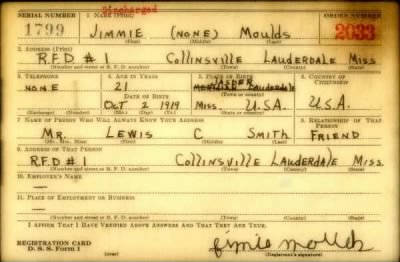 Discharged
SERIAL NUMBER 1. NAME (Print) ORDER NUMBER
1799 JIMMIE (NONE) Moulds 2033
(First) (Middle) (Last)
2. ADDRESS (Print)
R.F.D # 1 Collinsville Lauderdale Miss.
(Number and street or R. F. D. number) (Town) (County) (State)
3. TELEPHONE 4. AGE IN YEARS 5. PLACE OF BIRTH 6. COUNTRY OF CITIZENSHIP
NONE 21 JASPER Lauderdale
DATE OF BIRTH (Town or county)
OCT 2 1919 Miss. U.S.A. U.S.A.
(Exchange) (Number) (Mo.) (Day) (Yr.) (State or country)
7. NAME OF PERSON WHO WILL ALWAYS KNOW YOUR ADDRESS 8. RELATIONSHIP OF THAT PERSON
MR. LEWIS C SMITH FRIEND
(Mr., Mrs., Miss) (First) (Middle) (Last)
9. ADDRESS OF THAT PERSON
R.F.D # 1 Collinsville Lauderdale Miss.
(Number and street or R. F. D. number) (Town) (County) (State)
10. EMPLOYER'S NAME
—
11. PLACE OF EMPLOYMENT OR BUSINESS
—
(Number and street or R. F. D. number) (Town) (County) (State)
I AFFIRM THAT I HAVE VERIFIED ABOVE ANSWERS AND THAT THEY ARE TRUE.
REGISTRATION CARD
D. S. S. Form 1 (Registrant's signature)